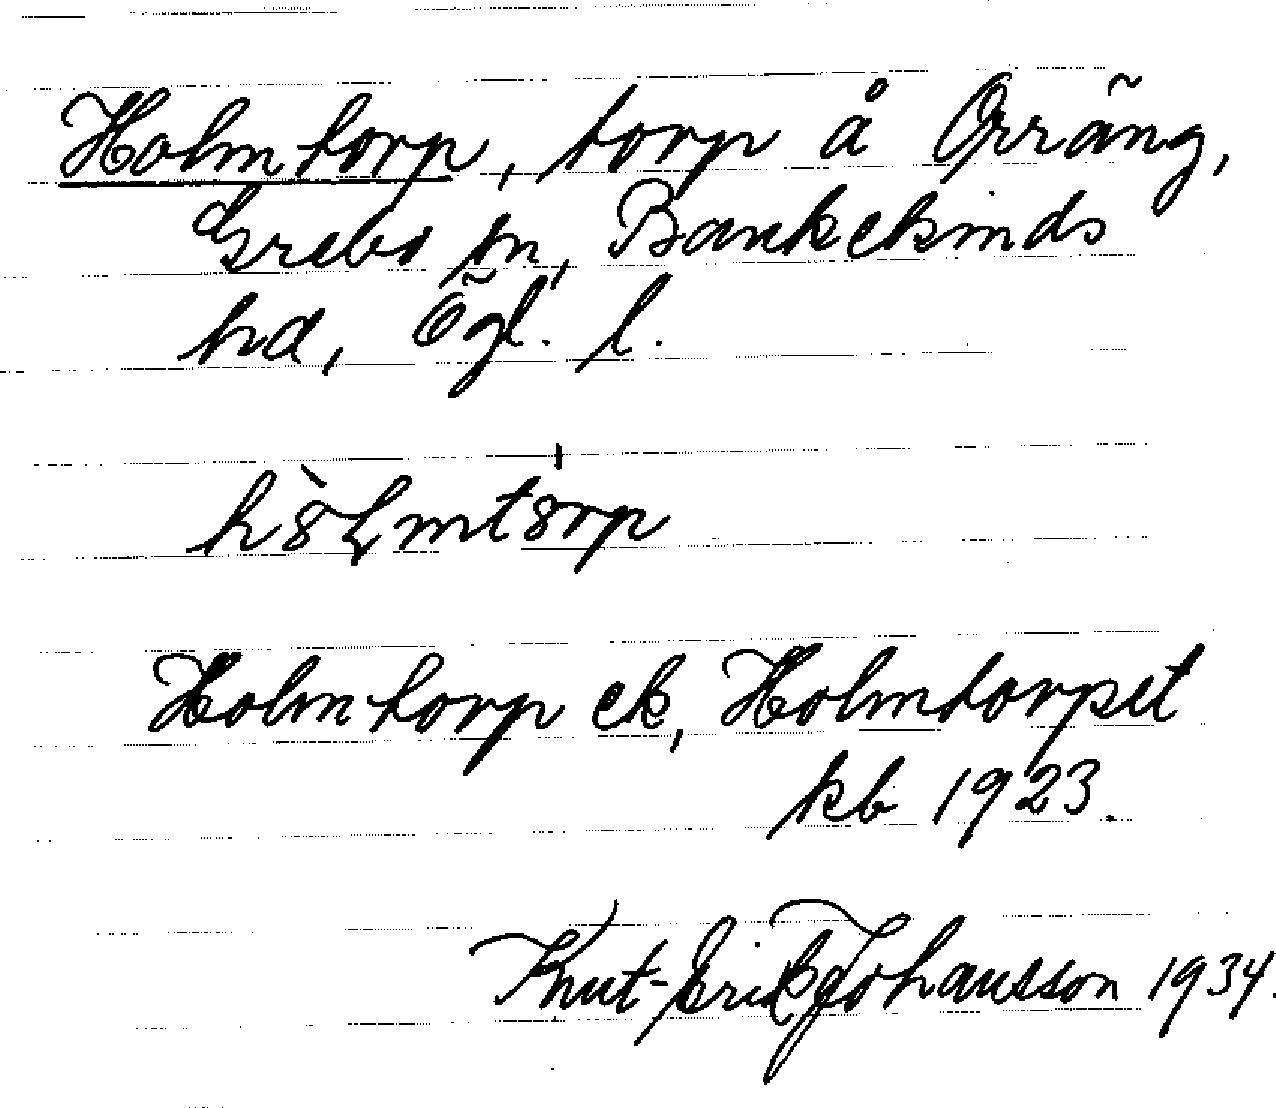 Holmtorp, torp å Orräng,
Grebo sn, Bankekinds
hd, Ögl. l.
hȣ̀ɫmtȣrp
Holmtorp ek, Holmtorpet
kb 1923.
Knut-Erik Johansson 1934.